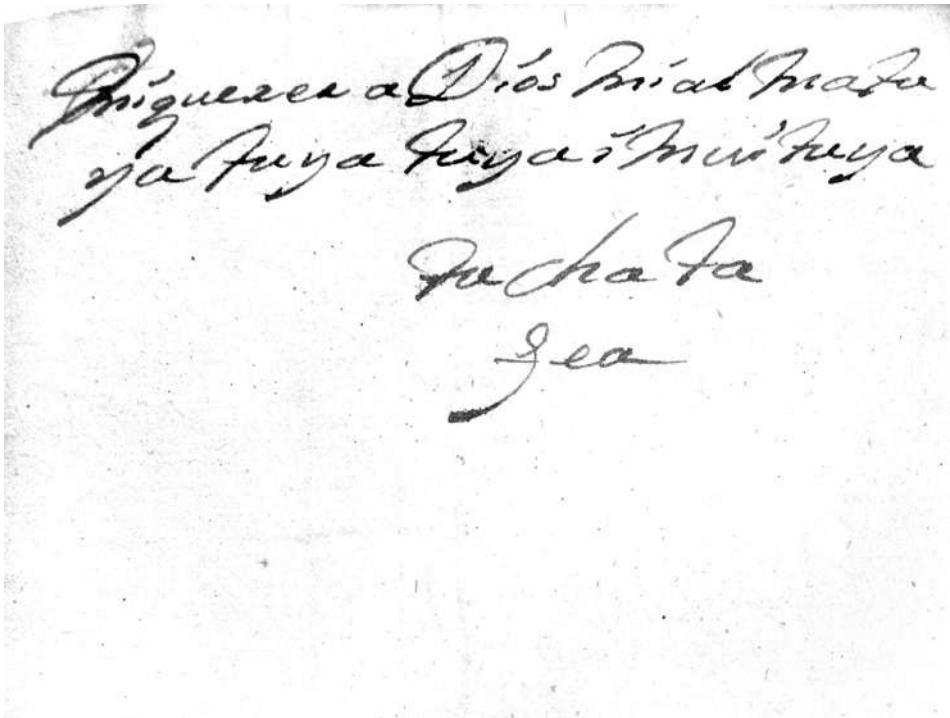 miquerer a Diós mi al matu
ya tuya tuya i mui tuya
tu chata
gea